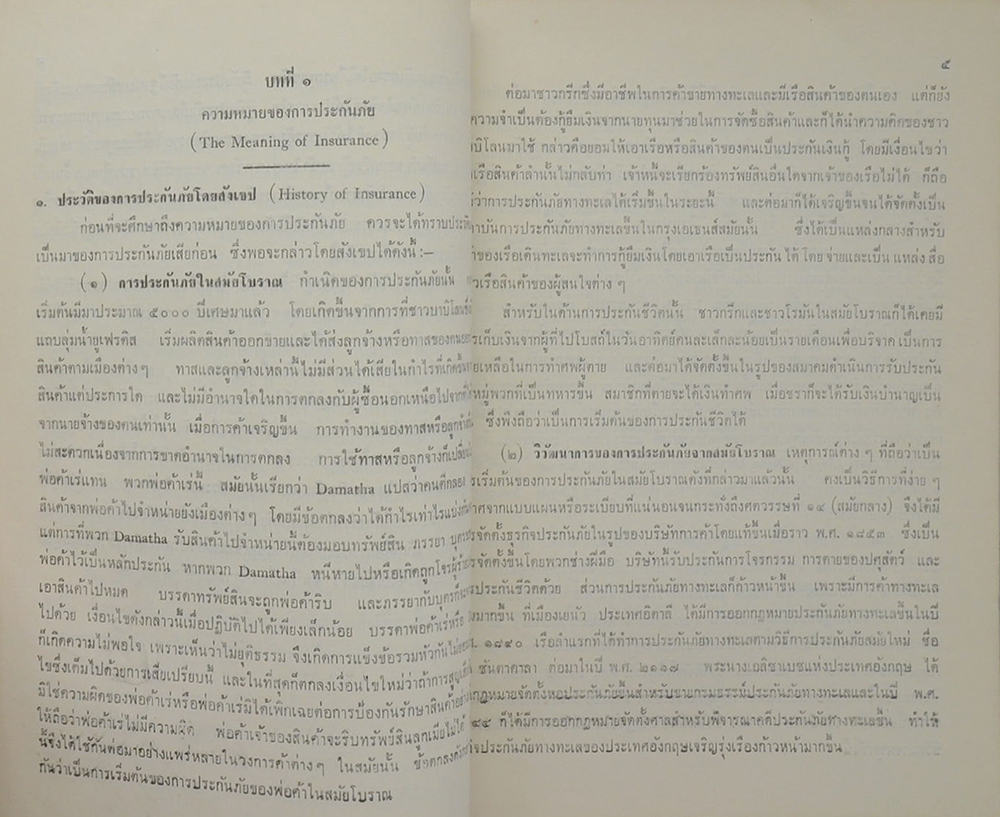 บทที่ ๑
ความหมายของการประกันภัย
(The Meaning of Insurance)
๑. ประวัติของการประกันภัยโดยสังเขป (History of Insurance)
ก่อนที่จะศึกษาถึงความหมายของการประกันภัย ควรจะได้ทราบประวัติ
เป็นมาของการประกันภัยเสียก่อน ซึ่งพอจะกล่าวโดยสังเขปได้ดังนี้ :–
(๑) การประกันภัยในสมัยโบราณ กำเนิดของการประกันภัยนั้น
เริ่มต้นมีมาประมาณ ๕๐๐๐ ปีเศษมาแล้ว โดยเกิดขึ้นจากการที่ชาวบาบิโลน
แถบลุ่มน้ำยูเฟรติส เริ่มผลิตสินค้าออกขายและได้ส่งลูกจ้างหรือทาสของตน
สินค้าตามเมืองต่างๆ ทาสและลูกจ้างเหล่านี้ไม่มีส่วนได้เสียในกำไรที่เกิด
สินค้าแต่ประการใด และไม่มีอำนาจใดในการตกลงกับผู้ซื้อนอกเหนือไปจาก
จากนายจ้างของตนเท่านั้น เมื่อการค้าเจริญขึ้น การทำงานของทาสหรือลูกจ้าง
ไม่สะดวกเนื่องจากการขาดอำนาจในการตกลง การใช้ทาสหรือลูกจ้างก็เปลี่ยน
พ่อค้าเร่แทน พวกพ่อค้าเร่นี้ สมัยนั้นเรียกว่า Damatha แปลว่าคนตีกลอง
สินค้าจากพ่อค้าไปจำหน่ายยังเมืองต่างๆ โดยมีข้อตกลงว่าได้กำไรเท่าไรแบ่ง
แต่การที่พวก Damatha รับสินค้าไปจำหน่ายนี้ต้องมอบทรัพย์สิน ภรรยา บุตร
พ่อค้าไว้เป็นหลักประกัน หากพวก Damatha หนีหายไปหรือเกิดถูกโจรผู้ร้าย
เอาสินค้าไปหมด บรรดาทรัพย์สินจะถูกพ่อค้าริบ และภรรยากับบุตรก็
ไปด้วย เงื่อนไขดังกล่าวนี้เมื่อปฏิบัติไปได้เพียงเล็กน้อย บรรดาพ่อค้าเร่หรือ
ก็เกิดความไม่พอใจ เพราะเห็นว่าไม่ยุติธรรม จึงเกิดการแข็งข้อรวมหัวกัน
ไขซึ่งเต็มไปด้วยการเสียเปรียบนี้ และในที่สุดก็ตกลงเงื่อนไขใหม่ว่าถ้าการสูญ
มิใช่ความผิดของพ่อค้าเร่หรือพ่อค้าเร่มิได้เพิกเฉยต่อการป้องกันรักษาสินค้า
ให้ถือว่าพ่อค้าเร่ไม่มีความผิด พ่อค้าเจ้าของสินค้าจะริบทรัพย์สินลูกเมียไม่ได้
นี้จึงได้ใช้กันต่อมาอย่างแพร่หลายในวงการค้าต่างๆ ในสมัยนั้น ข้อตกลง
กันว่าเป็นการเริ่มต้นของการประกันภัยของพ่อค้าในสมัยโบราณ
๕
ต่อมาชาวกรีกซึ่งมีอาชีพในการค้าขายทางทะเลและมีเรือสินค้าของตนเอง แต่ก็ยัง
ความจำเป็นต้องกู้ยืมเงินจากนายทุนมาช่วยในการจัดซื้อสินค้าและก็ได้นำความคิดของชาว
บิโลนมาใช้ กล่าวคือยอมให้เอาเรือหรือสินค้าของตนเป็นประกันเงินกู้ โดยมีเงื่อนไขว่า
เรือสินค้าลำนั้นไม่กลับท่า เจ้าหนี้จะเรียกร้องทรัพย์สินอื่นใดจากเจ้าของเรือไม่ได้ ก็ถือ
ว่าการประกันภัยทางทะเลได้เริ่มขึ้นในระยะนี้ และต่อมาก็ได้เจริญขึ้นจนได้จัดตั้งเป็น
บันการประกันภัยทางทะเลขึ้นในกรุงเอเธนส์สมัยนั้น ซึ่งได้เป็นแหล่งกลางสำหรับ
ของเรือเดินทะเลจะทำการกู้ยืมเงินโดยเอาเรือเป็นประกัน ได้ โดยจ่ายและเป็น แหล่ง สื่อ
เรือสินค้าของผู้สนใจต่าง ๆ
สำหรับในด้านการประกันชีวิตนั้น ชาวกรีกและชาวโรมันในสมัยโบราณก็ได้เคยมี
เก็บเงินจากผู้ที่ไปโบสถ์ในวันอาทิตย์คนละเล็กละน้อยเป็นรายเดือนเพื่อบริจาค เป็นการ
เหลือในการทำศพผู้ตาย และต่อมาได้จัดตั้งขึ้นในรูปของสมาคมดำเนินการรับประกัน
หมู่พวกที่เป็นทหารขึ้น สมาชิกที่ตายจะได้เงินทำศพ เมื่อชราก็จะได้รับเงินบำนาญเป็น
ซึ่งพึงถือว่าเป็นการเริ่มต้นของการประกันชีวิตได้
(๒) วิวัฒนาการของการประกันภัยจากสมัยโบราณ เหตุการณ์ต่าง ๆ ที่ถือว่าเป็น
เริ่มต้นของการประกันภัยในสมัยโบราณดังที่กล่าวมาแล้วนั้น คงเป็นวิธีการที่ง่าย ๆ
ศจากแบบแผนหรือระเบียบที่แน่นอนจนกระทั่งถึงศตวรรษที่ ๑๔ (สมัยกลาง) จึงได้มี
จัดตั้งธุรกิจประกันภัยในรูปของบริษัทการค้าโดยแท้ขึ้นเมื่อราว พ.ศ. ๑๘๕๓ ซึ่งเป็น
จัดตั้งขึ้นโดยพวกช่างฝีมือ บริษัทนี้รับประกันการโจรกรรม การตายของปศุสัตว์ และ
ประกันชีวิตด้วย ส่วนการประกันภัยทางทะเลก็ก้าวหน้าขึ้น เพราะมีการค้าทางทะเล
มากขึ้น ที่เมืองเยนัว ประเทศอิตาลี ได้มีการออกกฎหมายประกันภัยทางทะเลขึ้นในปี
๑๘๙๐ เรือลำแรกที่ได้ทำการประกันภัยทางทะเลตามวิธีการประกันภัยสมัยใหม่ ชื่อ
ซันตาคาลา ต่อมาในปี พ.ศ. ๒๑๑๗ พระนางเอลิซาเบธแห่งประเทศอังกฤษ ได้
กฎหมายจัดตั้งหอประกันภัยขึ้นสำหรับขายกรมธรรม์ประกันภัยทางทะเลและในปี พ.ศ.
๔๔ ก็ได้มีการออกกฎหมายจัดตั้งศาลสำหรับพิจารณาคดีประกันภัยทางทะเลขึ้น ทำให้
ประกันภัยทางทะเลของประเทศอังกฤษเจริญรุ่งเรืองก้าวหน้ามากขึ้น